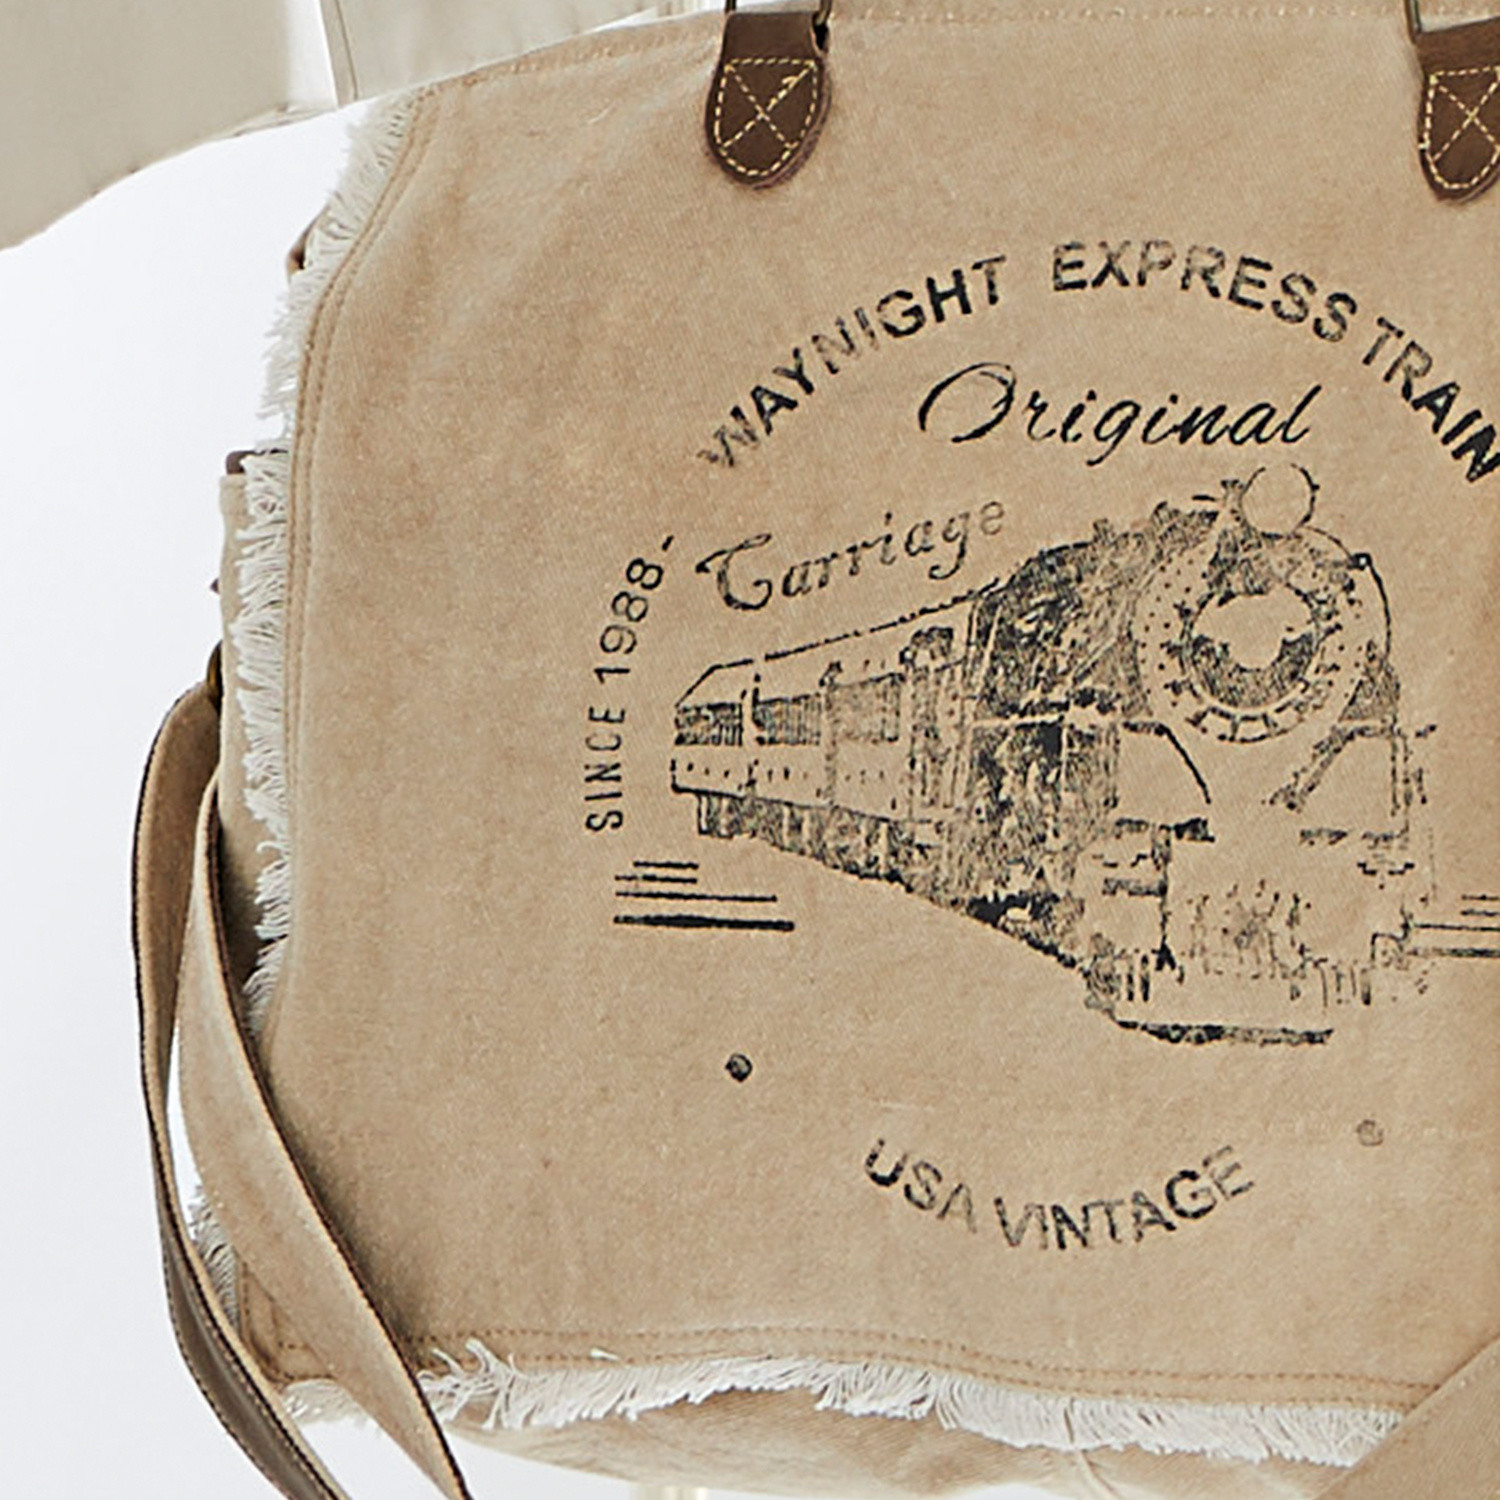 WAYNIGHT EXPRESS TRAIN
Original
Carriage
SINCE 1988-
USA VINTAGE